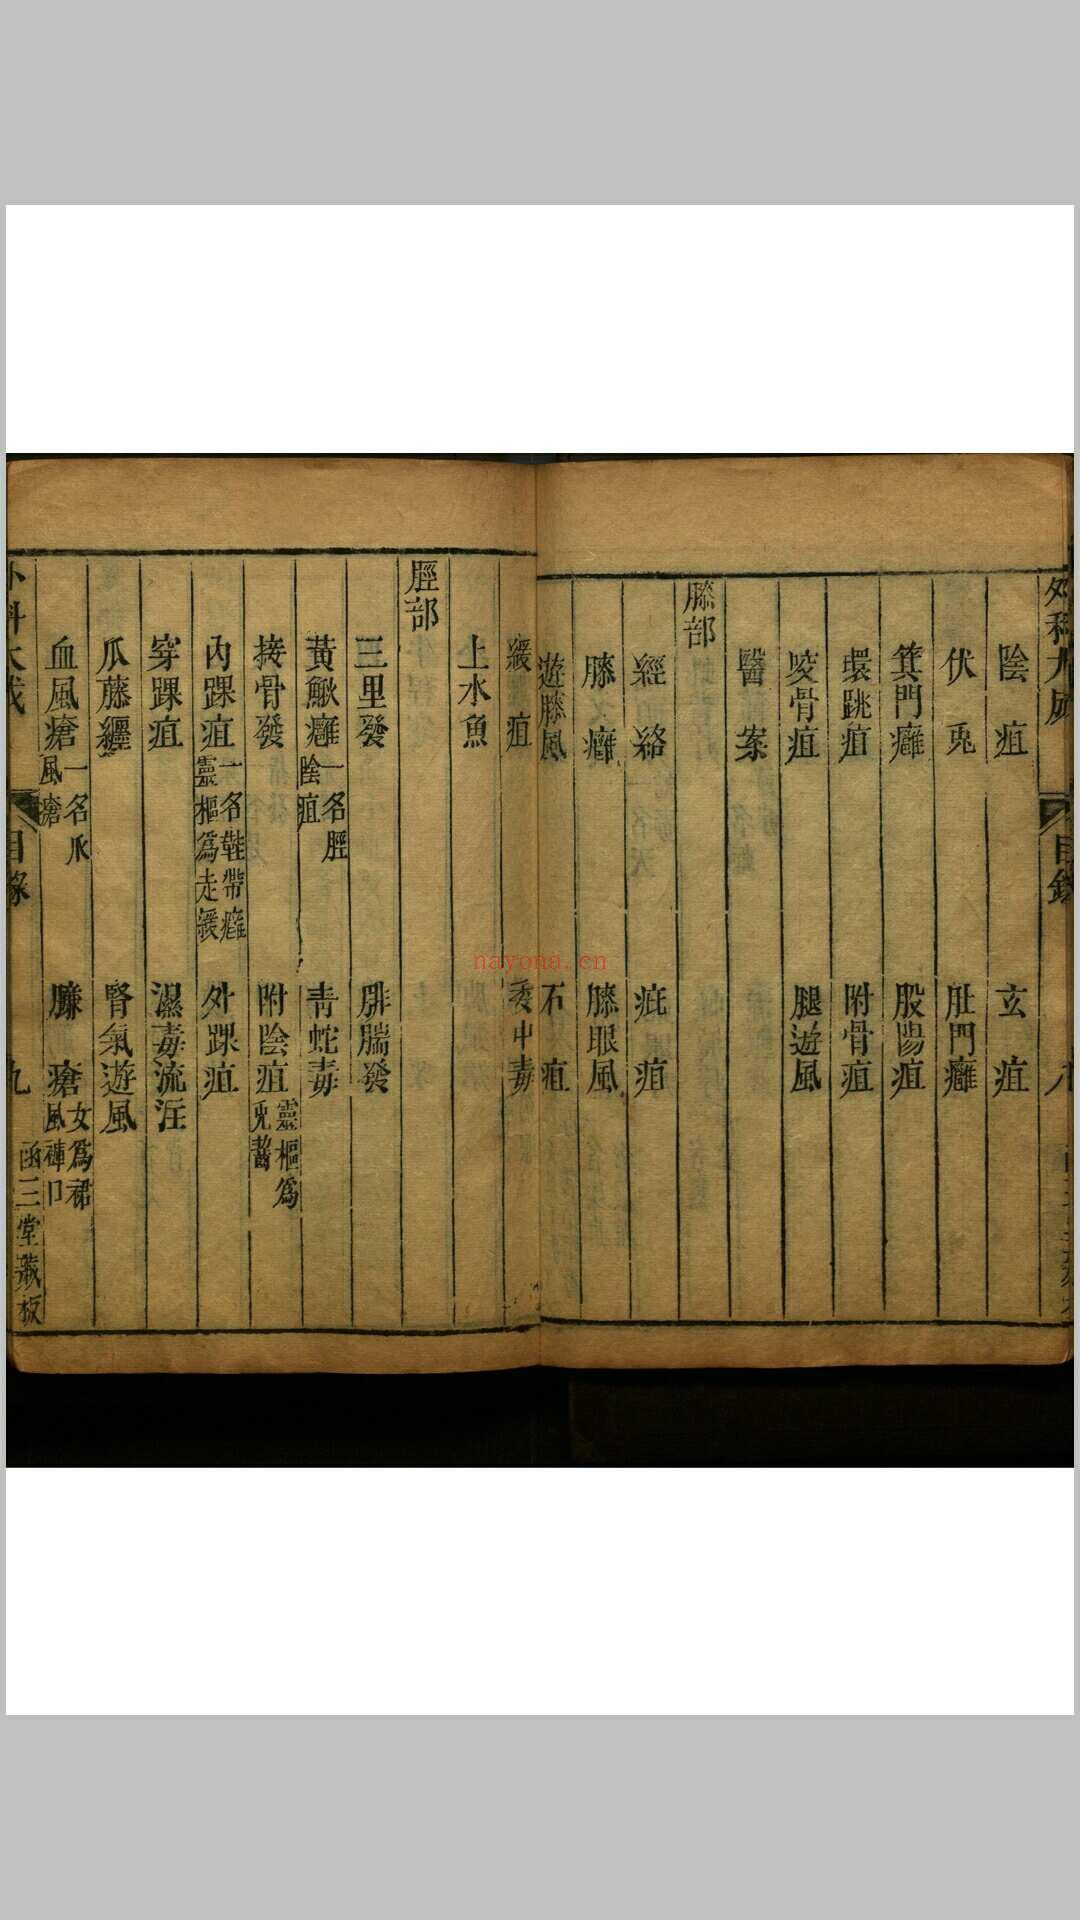 外科大成
目錄
八
陰疽
玄疽
伏兎
肚門癰
箕門癰
股陽疽
環跳疽
附骨疽
咬骨疽
腿遊風
醫案
膝部
經絡
疵疽
膝文癰
膝眼風
遊膝風
石疽
緩疽
委中毒
上水魚
脛部
三里發
腓腨發
黃鰍癰一名脛陰疽
青蛇毒
接骨發
附陰疽靈樞為兎齧
內踝疽一名鞋帶癰靈樞為走緩
外踝疽
穿踝疽
濕毒流注
瓜藤纏
腎氣遊風
血風瘡一名爪風瘡
臁瘡女為裙風褲口
外科大成
目錄
九
函三堂藏板
nayona.cn